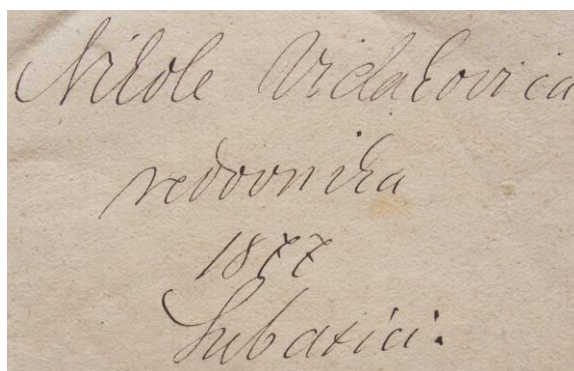 Nikole Vidakovica
redovnika
1877
Subatici.